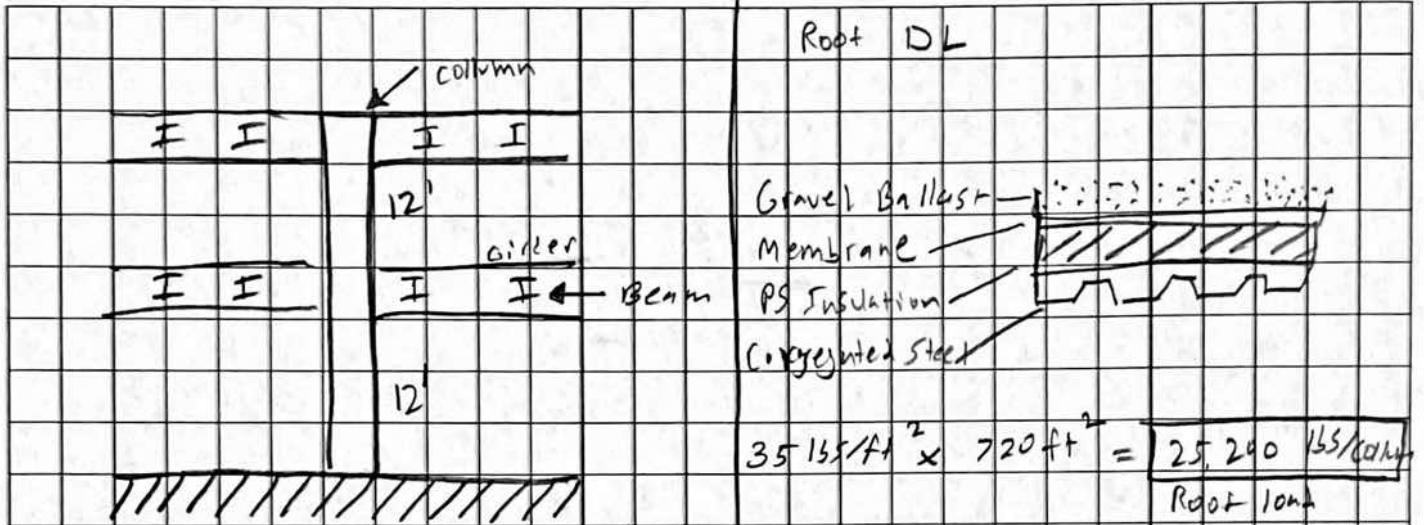 column
I I I I
12'
girder
I I I I
Beam
12'
Roof DL
Gravel Ballast
Membrane
PS Insulation
Corregated Steel
35 lbs/ft² x 720 ft² = 25,200 lbs/column
Roof load